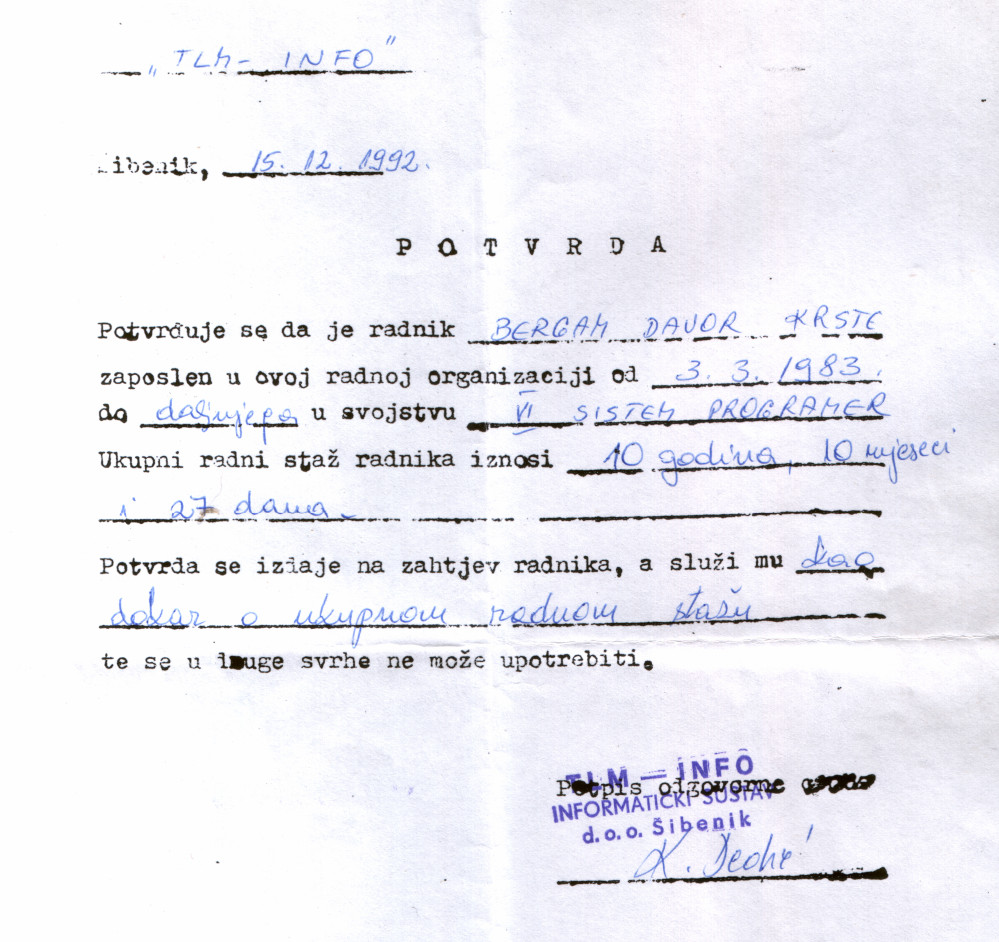 „TLM - INFO”
Šibenik, 15. 12. 1992.
P O T V R D A
Potvrđuje se da je radnik BERGAM DAVOR KRSTE
zaposlen u ovoj radnoj organizaciji od 3. 3. 1983.
do daljnjega u svojstvu VI SISTEM PROGRAMER
Ukupni radni staž radnika iznosi 10 godina, 10 mjeseci
i 27 dana.
Potvrda se izdaje na zahtjev radnika, a služi mu kao
dokaz o ukupnom radnom stažu
te se u druge svrhe ne može upotrebiti.
TLM — INFO
Potpis odgovorne
INFORMATIČKI SUSTAV
d.o.o. Šibenik